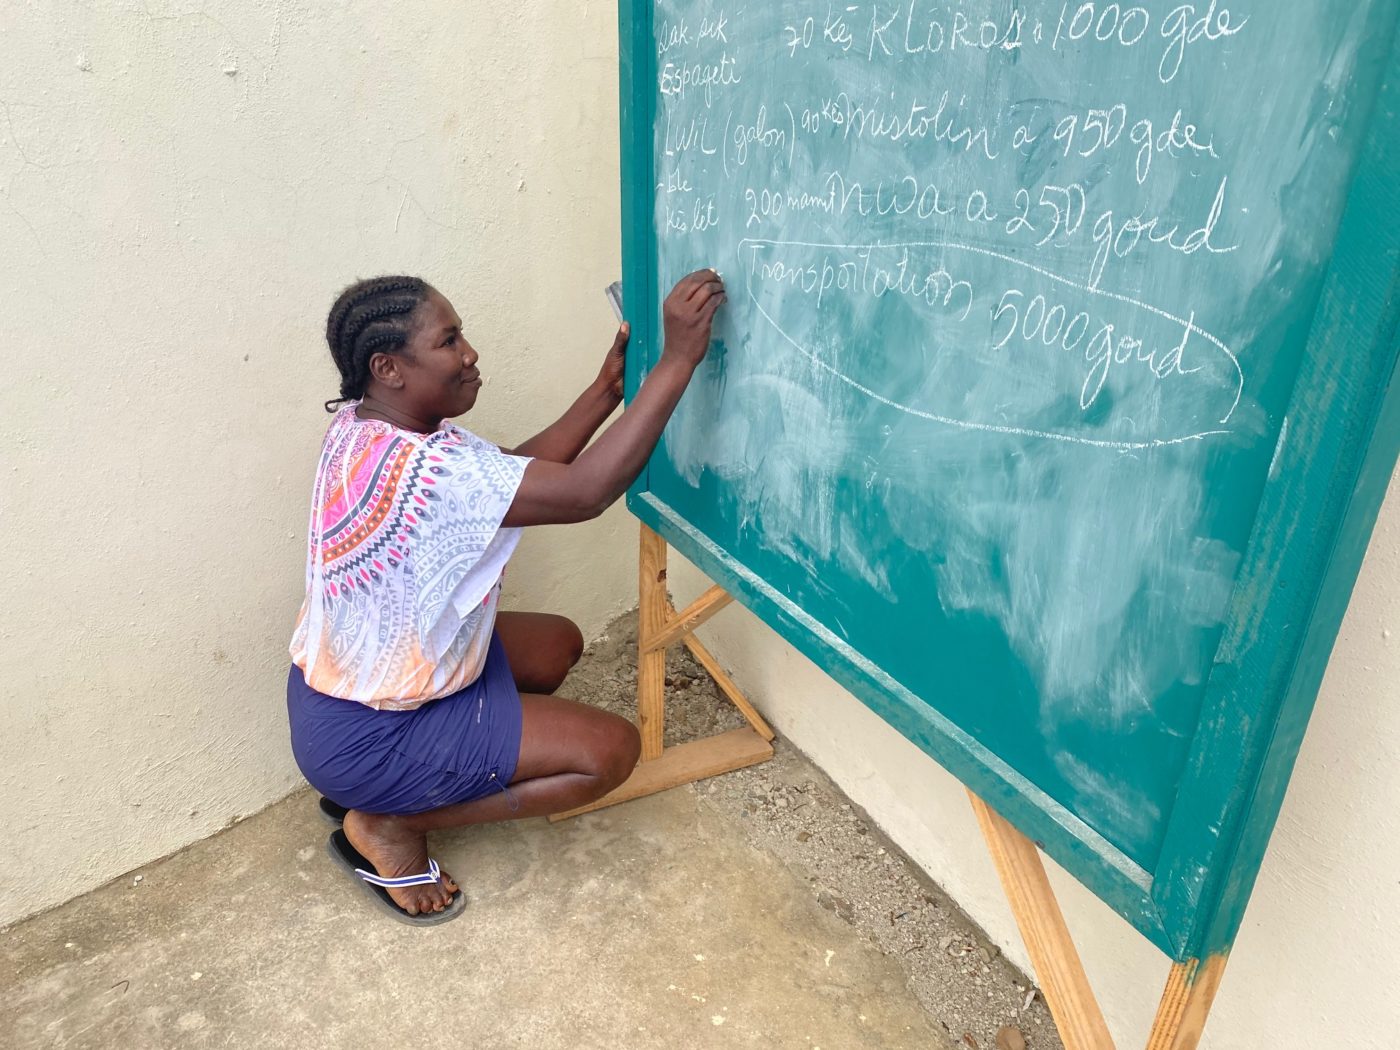 sak sik 70 kès KLOROX a 1000 gde
Espageti
LWIL (galon) 90 kès mistolin a 950 gde
ble
kès lèt 200 mamit nwa a 250 goud
Transportation 5000 goud